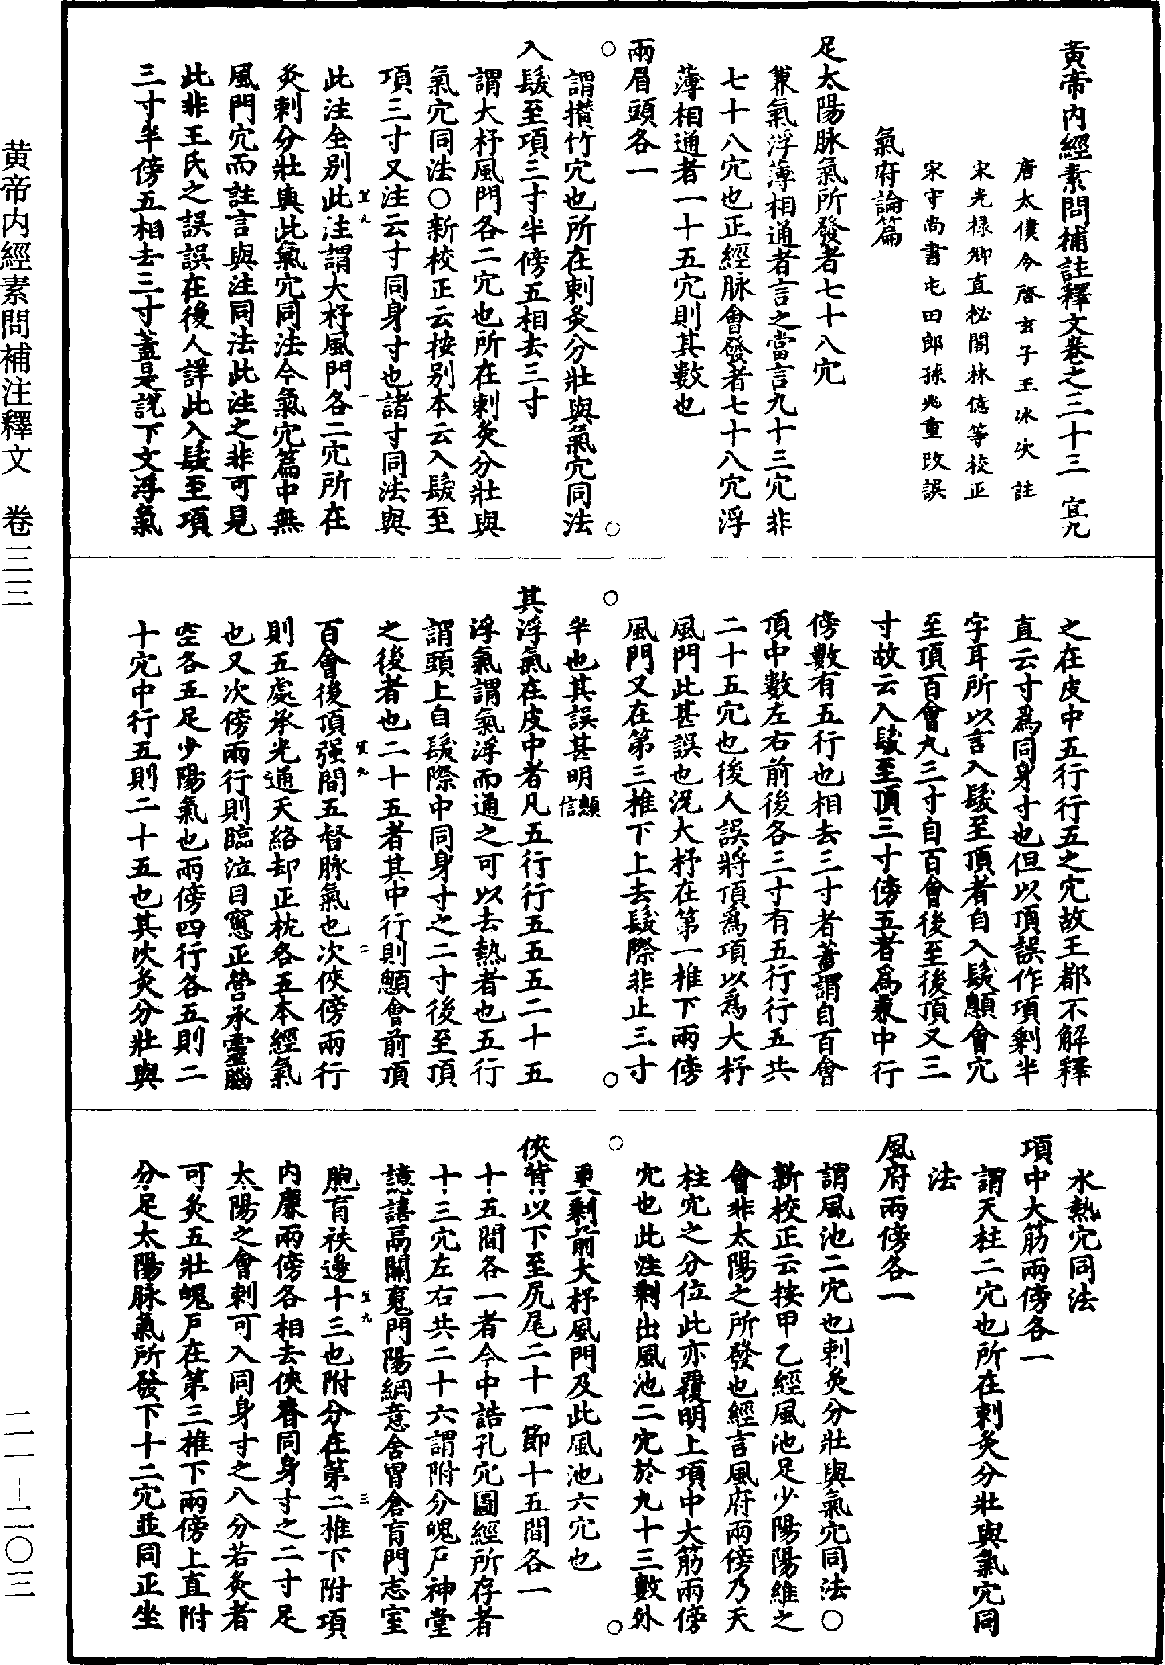 黃帝內經素問補註釋文卷之三十三 宜九
唐太僕令啓玄子王冰次註
宋光祿卿直秘閣林億等校正
宋守尚書屯田郎孫兆重改誤
氣府論篇
足太陽脉氣所發者七十八穴
兼氣浮薄相通者言之當言九十三穴非
七十八穴也正經脉會發者七十八穴浮
薄相通者一十五穴則其數也
兩眉頭各一
謂攢竹穴也所在刺灸分壯與氣穴同法
入髮至項三寸半傍五相去三寸
謂大杼風門各二穴也所在刺灸分壯與
氣穴同法○新校正云按别本云入髮至
項三寸又注云寸同身寸也諸寸同法與
此注全别此注謂大杼風門各二穴所在
灸刺分壯與此氣穴同法今氣穴篇中無
風門穴而註言與注同法此注之非可見
此非王氏之誤誤在後人詳此入髮至項
三寸半傍五相去三寸蓋是說下文浮氣
之在皮中五行行五之穴故王都不解釋
直云寸爲同身寸也但以頂誤作項剩半
字耳所以言入髮至頂者自入髮顖會穴
至頂百會九三寸自百會後至後頂又三
寸故云入髮至頂三寸傍五者爲兼中行
傍數有五行也相去三寸者蓋謂自百會
頂中數左右前後各三寸有五行行五共
二十五穴也後人誤將頂爲項以爲大杼
風門此甚誤也況大杼在第一椎下兩傍
風門又在第三椎下上去髮際非止三寸
半也其誤甚明顖信
其浮氣在皮中者凡五行行五五五二十五
浮氣謂氣浮而通之可以去熱者也五行
謂頭上自髮際中同身寸之二寸後至頂
之後者也二十五者其中行則顖會前頂
百會後頂强間五督脉氣也次俠傍兩行
則五處承光通天絡却正枕各五本經氣
也又次傍兩行則臨泣目窻正營承靈腦
空各五足少陽氣也兩傍四行各五則二
十穴中行五則二十五也其次灸分壯與
水熱穴同法
項中大筋兩傍各一
謂天柱二穴也所在刺灸分壯與氣穴同
法
風府兩傍各一
謂風池二穴也刺灸分壯與氣穴同法○
新校正云按甲乙經風池足少陽陽維之
會非太陽之所發也經言風府兩傍乃天
柱穴之分位此亦覆明上項中大筋兩傍
穴也此注剩出風池二穴於九十三數外
更剩前大杼風門及此風池六穴也
俠背以下至尻尾二十一節十五間各一
十五間各一者今中誥孔穴圖經所存者
十三穴左右共二十六謂附分魄戶神堂
譩譆鬲關䰟門陽綱意舍胃倉肓門志室
胞肓秩邊十三也附分在第二椎下附項
內廉兩傍各相去俠脊同身寸之二寸足
太陽之會刺可入同身寸之八分若灸者
可灸五壯魄戶在第三椎下兩傍上直附
分足太陽脉氣所發下十二穴並同正坐
黄帝内經素問補注釋文 卷三三
二一－二〇三